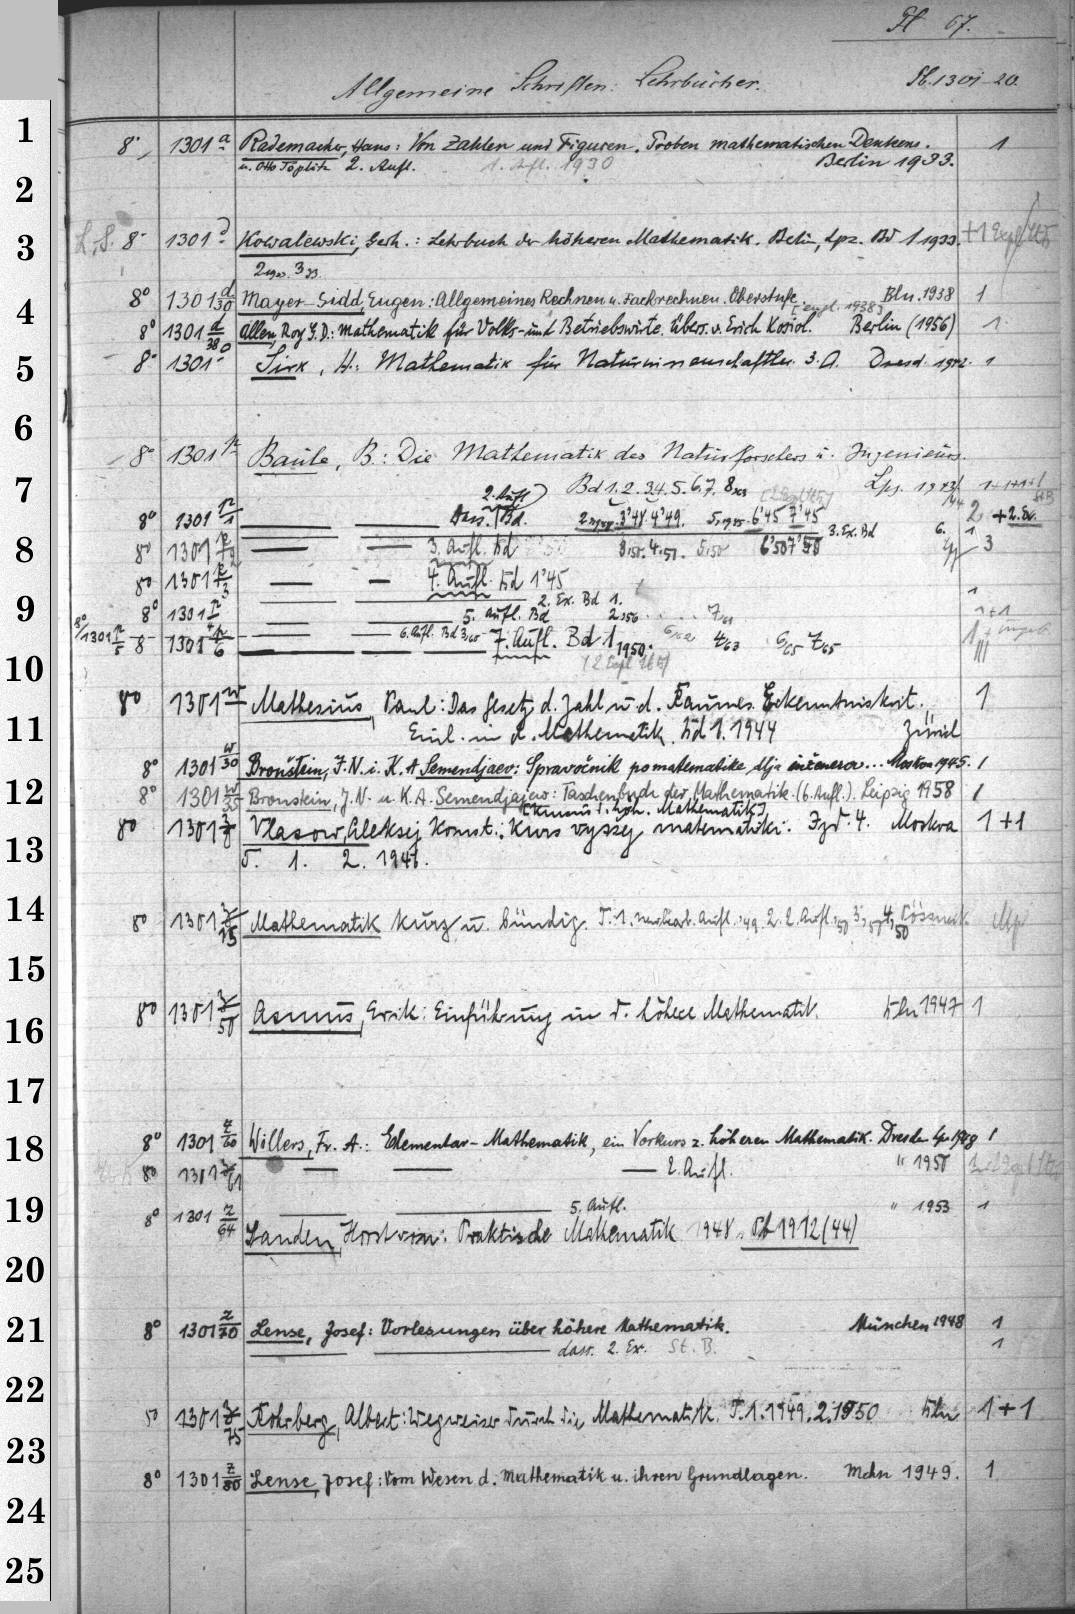 Pb 67.
Allgemeine Schriften: Lehrbücher. Pb. 1301-20.
1
8° 1301 a Rademacher, Hans: Von Zahlen und Figuren. Proben mathematischen Denkens. 1
u. Otto Töplitz 2. Aufl. 1. Aufl. 1930 Berlin 1933.
2
3
L.S. 8° 1301 d Kowalewski, Gerh.: Lehrbuch der höheren Mathematik. Berlin, Lpz. Bd 1 1933. +1 Expl
2 1933. 3 33.
4
8° 1301 d/30 Mayer-Sidd, Eugen: Allgemeines Rechnen u. Fachrechnen. Oberstufe. Bln. 1938 1
[engl. 1938]
8° 1301 d/38 Allen, Roy G.D.: Mathematik für Volks- und Betriebswirte. Übers. v. Erich Kosiol. Berlin (1956) 1
5
8° 1301 o Sirk, H.: Mathematik für Naturwissenschaftler. 3. A. Dresd. 1942. 1
6
8° 1301 p Baule, B.: Die Mathematik des Naturforschers u. Ingenieurs.
7
Bd 1. 2. 3. 4. 5. 6. 7. 8 Lpz.
2. Aufl.
8° 1301 p/1 Dass. Bd. 2 3'48. 4'49. 5. 6'45 7'45 2 + 2. Ex.
3. Ex. Bd 6.
8
8° 1301 p/2 3. Aufl. Bd 3,50. 4,50. 5,50 6'50 7'50 3
8° 1301 p/3 4. Aufl. Bd 1'45
9
2. Ex. Bd 1.
8° 1301 p/4 5. Aufl. Bd 2,56 7/61 1+1
8° 1301 p/5 8° 1301 p/6 6. Aufl. Bd 3/65 7. Aufl. Bd 1 1950. 6/62 4/63 6/65 7/65
10
(2 Expl
8° 1301 w Mathesius, Paul: Das Gesetz d. Zahl u. d. Raumes. Erkenntniskrit. 1
11
Einl. in d. Mathematik. Bd 1. 1944 Zürich
8° 1301 w/30 Bronštein, I.N. i. K. A Semendjaev: Spravočnik po matematike dlja inženerov... Moskva 1945. 1
12
8° 1301 w/35 Bronstein, I.N. u. K.A. Semendjajew: Taschenbuch der Mathematik. (6. Aufl.). Leipzig 1958 1
[Kursus d. höh. Mathematik]
13
8° 1301 z Vlasov, Aleksej Konst.: Kurs vysšej matematiki. Izd. 4. Moskva 1+1
T. 1. 2. 1946.
14
8° 1301 z/15 Mathematik kurz u. bündig. T. 1. neubearb. Aufl. '49. 2. 2. Aufl. '50 3, 4, 50 Pössneck.
15
16
8° 1301 z/50 Asmus, Erik: Einführung in d. höhere Mathematik. Bln 1947 1
17
18
8° 1301 z/60 Willers, Fr. A.: Elementar-Mathematik, ein Vorkurs z. höheren Mathematik. Dresden Lpz 1948 1
8° 1301 z/61 2. Aufl. " 1950
19
8° 1301 z/64 5. Aufl. " 1953 1
Sanden, Horst von: Praktische Mathematik 1948. Pb 1912(44)
20
21
8° 1301 z/70 Lense, Josef: Vorlesungen über höhere Mathematik. München 1948 1
dass. 2. Ex. St. B. 1
22
8° 1301 z/75 Rohrberg, Albert: Wegweiser durch die Mathematik. T. 1. 1949. 2. 1950 Bln 1+1
23
8° 1301 z/80 Lense, Josef: Vom Wesen d. Mathematik u. ihren Grundlagen. Mchn 1949. 1
24
25